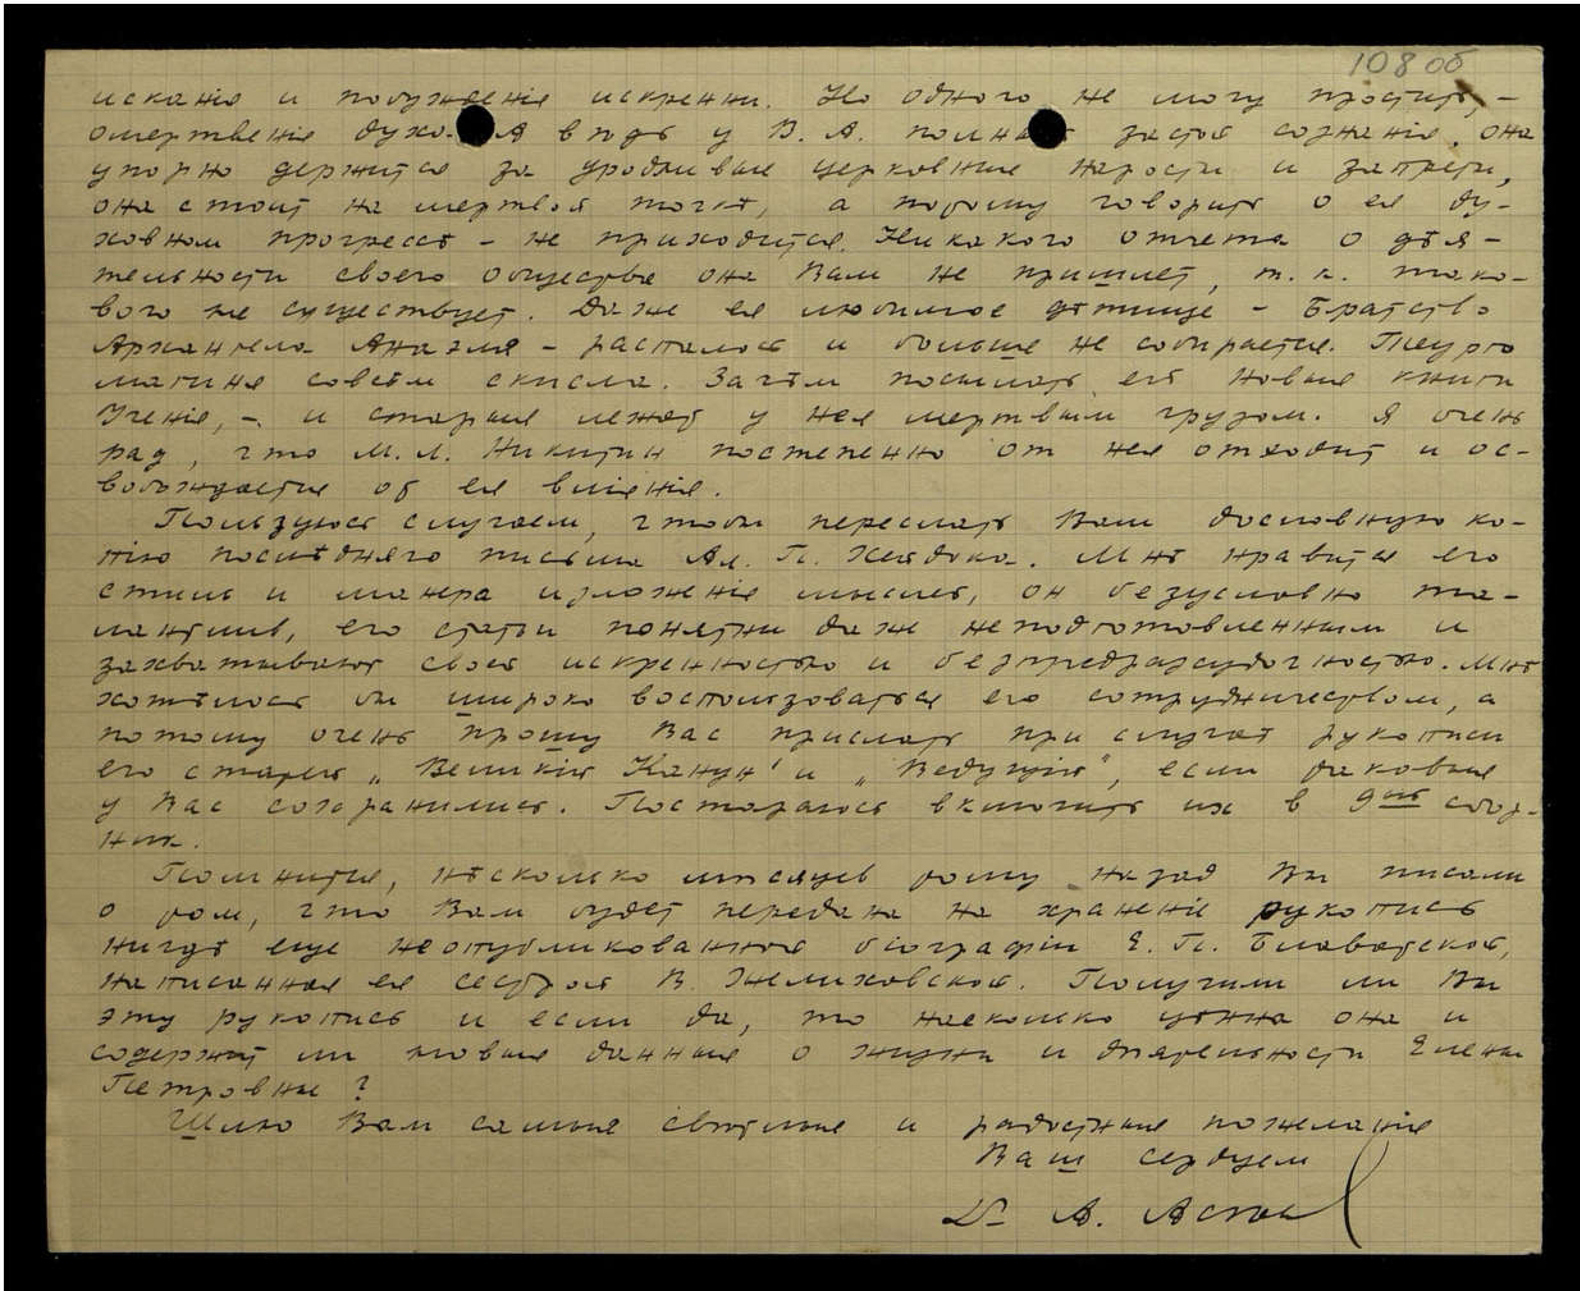 108 об
исканія и побужденія искренни. Но одного не могу простить, –
омертвенія духа. А вѣдь у В. А. полный застой сознанія, она
упорно держится за уродливые церковные наросты и запреты,
она стоит на мертвой точкѣ, а потому говорить о ея ду-
ховном прогрессѣ – не приходится. Никакого отчета о дѣя-
тельности своего общества она Вам не пришлет, т. к. тако-
вого не существует. Даже ея любимое дѣтище – Братство
Архангела Анаэля – распалось и больше не собирается.
совсѣм скисла. Зачѣм посылать ей новые книги
Ученія, – и старые лежат у нея мертвым грузом. Я очень
рад, что М. Л. Никитин постепенно от нея отходит и ос-
вобождается от ея вліянія.
Пользуюсь случаем, чтобы переслать Вам дословную ко-
пію послѣдняго письма Ал. П. Хейдока. Мнѣ нравится его
стиль и манера изложенія мыслей, он безусловно та-
лантлив, его статьи понятны даже неподготовленным и
захватывают своей искренностью и безпредразсудочностью. Мнѣ
хотѣлось бы широко воспользоваться его сотрудничеством, а
потому очень прошу Вас прислать при случаѣ рукописи
его статей „Великій Канун" и „Ведущій", если таковые
у Вас сохранились. Постараюсь включить их в 9ый сбор-
ник.
Помнится, нѣсколько мѣсяцев тому назад Вы писали
о том, что Вам будет передана на храненіе рукопись
нигдѣ еще неопубликованной біографіи Е. П. Блаватской,
написанная ея сестрой В. Желиховской. Получили ли Вы
эту рукопись и если да, то насколько цѣнна она и
содержит ли новые данные о жизни и дѣятельности Елены
Петровны?
Шлю Вам самые свѣтлые и радостные пожеланія
Ваш сердцем
Dr А. Асеев